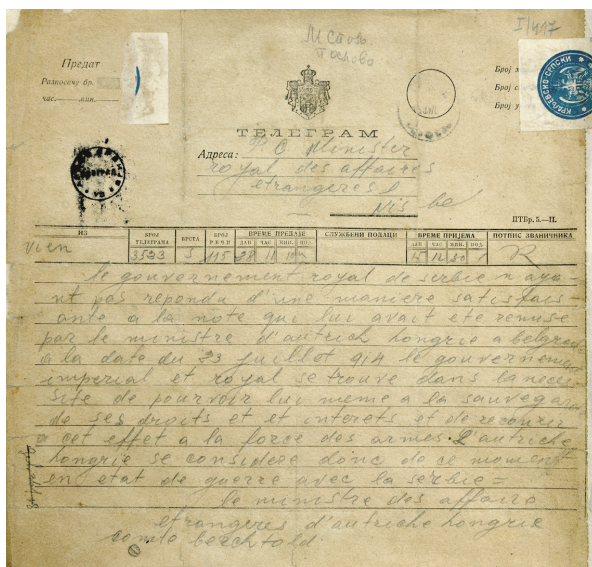 I/417
Предат
Разносачу бр.
час. мин.
Број
Број
Број
КРАЉЕВСКО-СРПСКИ
ТЕЛЕГРАМ
Адреса:
Minister
royal des affaires
etrangeres
Nis
ПТБр. 5.—II.
ИЗ
БРОЈ ТЕЛЕГРАМА
ВРСТА
БРОЈ РЕЧИ
ВРЕМЕ ПРЕДАЈЕ
СЛУЖБЕНИ ПОДАЦИ
ВРЕМЕ ПРИЈЕМА
ПОТПИС ЗВАНИЧНИКА
ДАН ЧАС. МИН. ПОД.
ДАН ЧАС. МИН. ПОД.
Vien 3523 5 115 28 11
le gouvernement royal de serbie n aya-
nt pas repondu d'une maniere satisfais-
ante a la note qui lui avait ete remise
par le ministre d'autrich hongrie a belgrad
a la date du 23 juillot 914 le gouvernement
imperial et royal se trouve dans la neces-
site de pourvoir lui meme a la sauvegar
de ses droits et et interets et de recourir
a cet effet a la force des armes. L'autriche
hongrie se considere donc de ce moment
en etat de guerre avec la serbie =
le ministre des affaire
etrangeres d'autriche hongrie
comte berchtold.